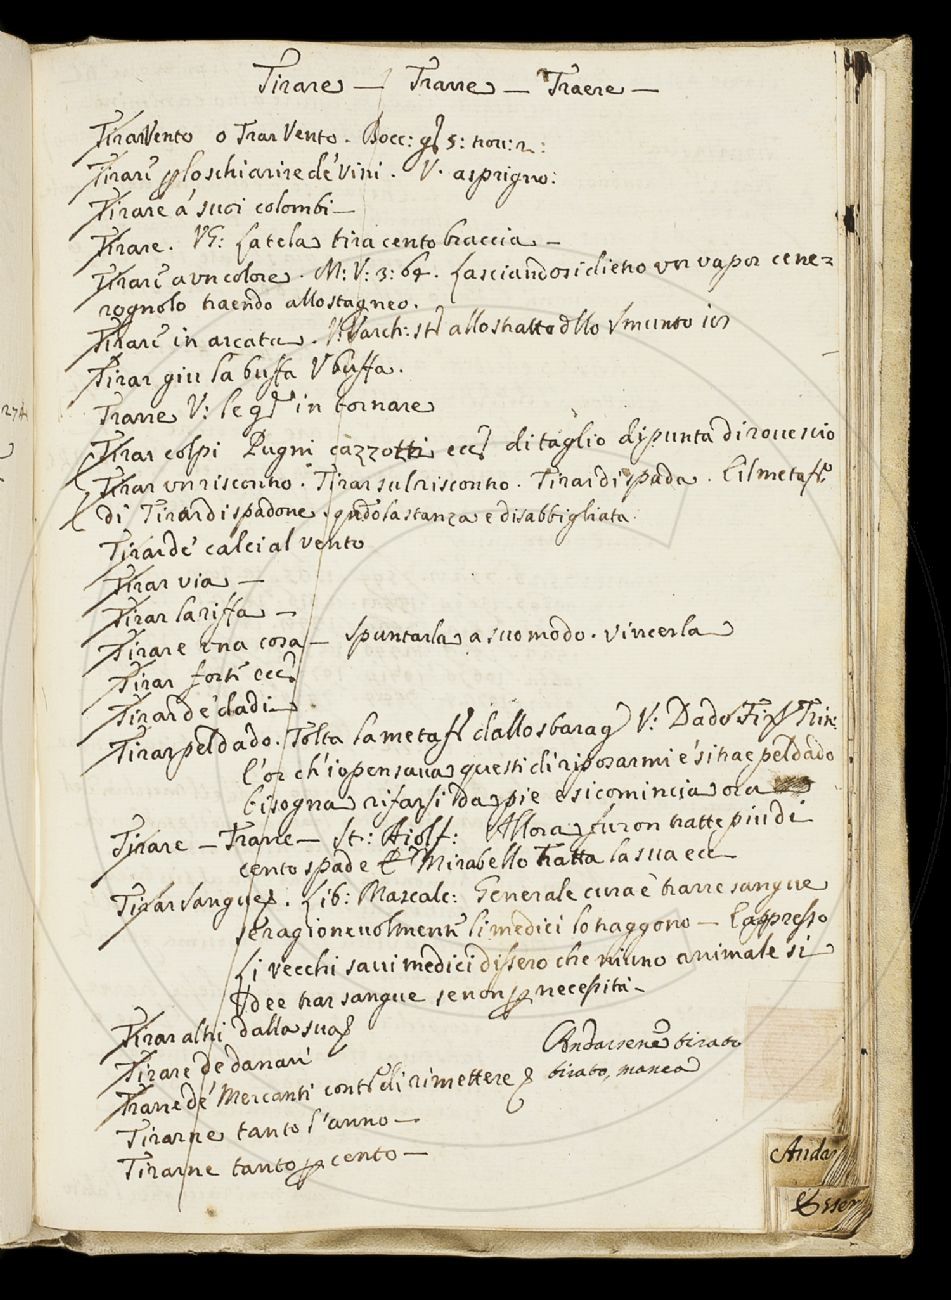 Tirare — Trarre — Traere —
Tirar Vento o Trar Vento. Bocc: g. 5: nou: 2:
Tirare schiarire de' vini. V. asprigno:
Tirare a' suoi colombi —
Tirare. VG: La tela tira cento braccia —
Tirare a un colore. M: V: 3: 64. Lasciandosi dieto un vapor cene=
rognolo traendo allo stagneo.
Tirare in arcata. V: Varch: allo tratto dllo Smunto
Tirar giu la buffa V buffa.
Trarre V: le in tornare
Tirar colpi Pugni cazzotti ecc di taglio di punta di rouescio
Tirar un riscontro. Tirar sul riscontro. Tirar di spada. E il metaf.
di Tirar di spadone. qndo la stanza è disabbigliata.
Tirar de' calci al vento
Tirar via —
Tirar la riffa —
Tirare una cosa — spuntarla a suo modo. vincerla
Tirar forte ecc
Tirar de' dadi —
Tirar pel dado. Tolta la metaf. dallo sbarag V: Dado
l'or ch'io pensaua questi di riposarmi e' si trae pel dado
bisogna rifarsi da pie e si comincia ora
Tirare — Trarre — St: Aiolf: Allora furon tratte piu di
cento spade Et Mirabello tratta la sua ecc
Tirar sangue. Lib: Mascalc: Generale cura è trarre sangue
se ragioneuolmente li medici lo traggono — E appresso
Li vecchi saui medici dissero che niuno animale si
dee trar sangue se non p necessità —
Tirar altri dalla sua
Tirare de danari
Andarsene tirato
Trarre de' Mercanti contro di rimettere
tirato, manca
Tirarne tanto l'anno —
Tirarne tanto p cento —
Andar
Esser
274